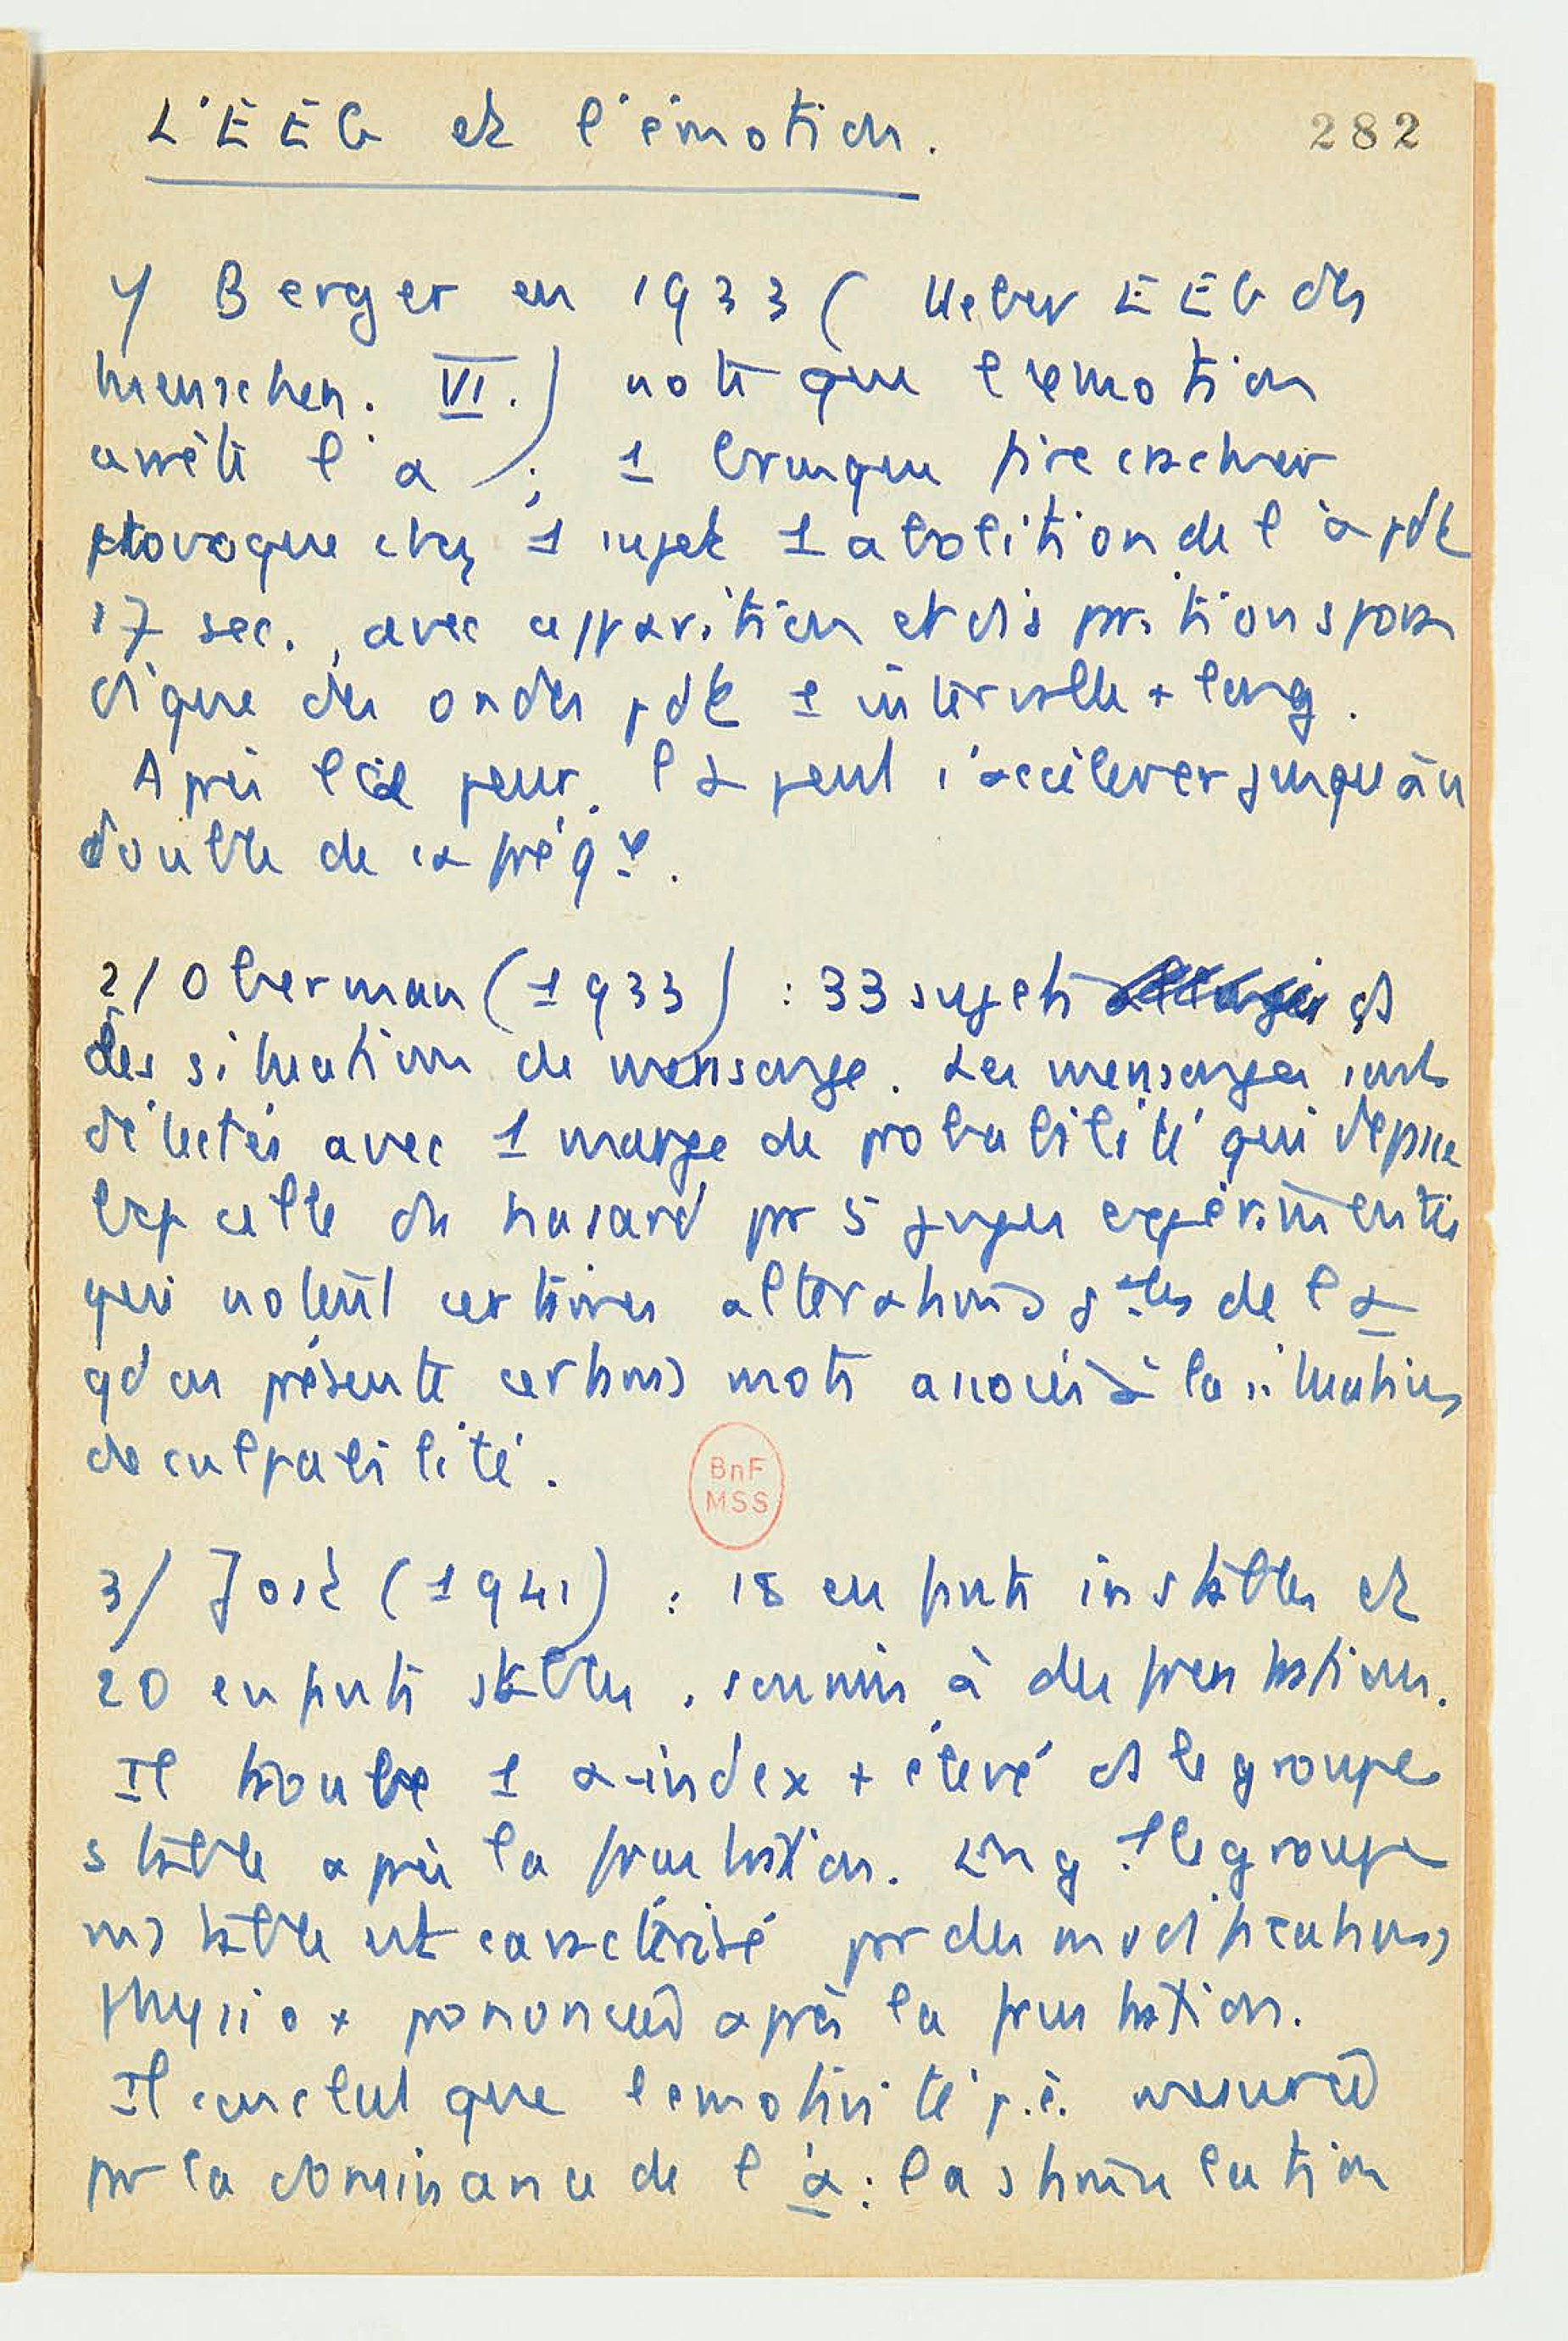 L'EEG et l'émotion.
282
1/ Berger en 1933 ( Ueber EEG des
Menschen. VI.) note que l'émotion
arrête l'α ; 1 brusque
provoque chez 1 sujet 1 abolition de l'α pdt
17 sec., avec apparition et disparition spora
dique des ondes pdt 1 intervalle + long.
Après la peur, l'α peut s'accélérer jusqu'au
double de sa fréq ce.
2/ Oberman (1933) : 33 sujets ds
des situations de mensonge. Les mensonges sont
détectés avec 1 marge de probabilité qui dépasse
bcp celle du hasard par 5 juges expérimentés
qui notent certaines altérations gales de l'α
qd on présente certains mots associés à la situation
de culpabilité.
BnF
MSS
3/ Jost (1941) : 18 enfants instables et
20 enfants stables, soumis à des frustrations.
Il trouve 1 α-index + élevé ds le groupe
stable après la frustration. le groupe
instable est caractérisé par des modifications
physio + prononcées après la frustration.
Il conclut que l'émotivité p.ê. mesurée
par la dominance de l'α : la stimulation